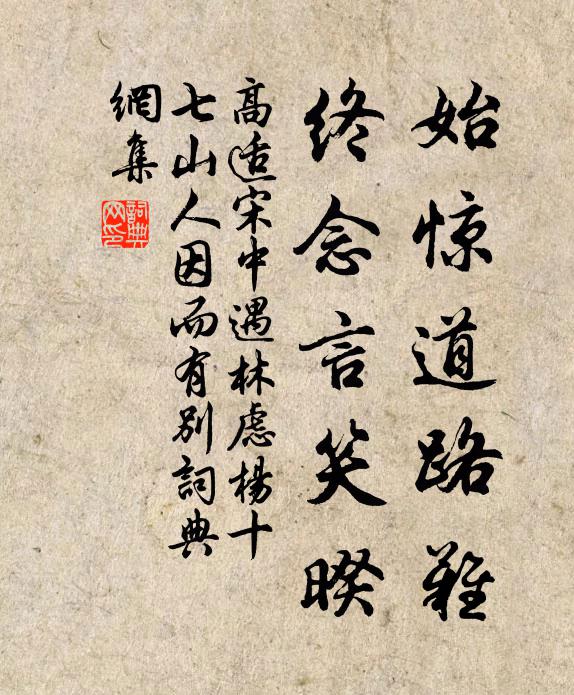 始惊道路難
终念言笑暌
高适宋中遇林慮楊十
七山人因而有别詞典
網集
詞典
网印